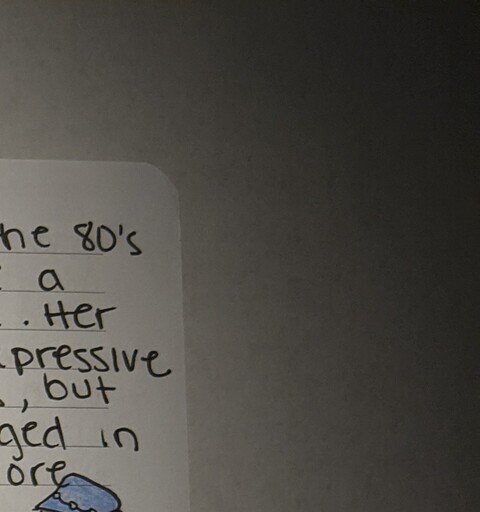 he 80's
a
. Her
pressive
, but
ged in
ore